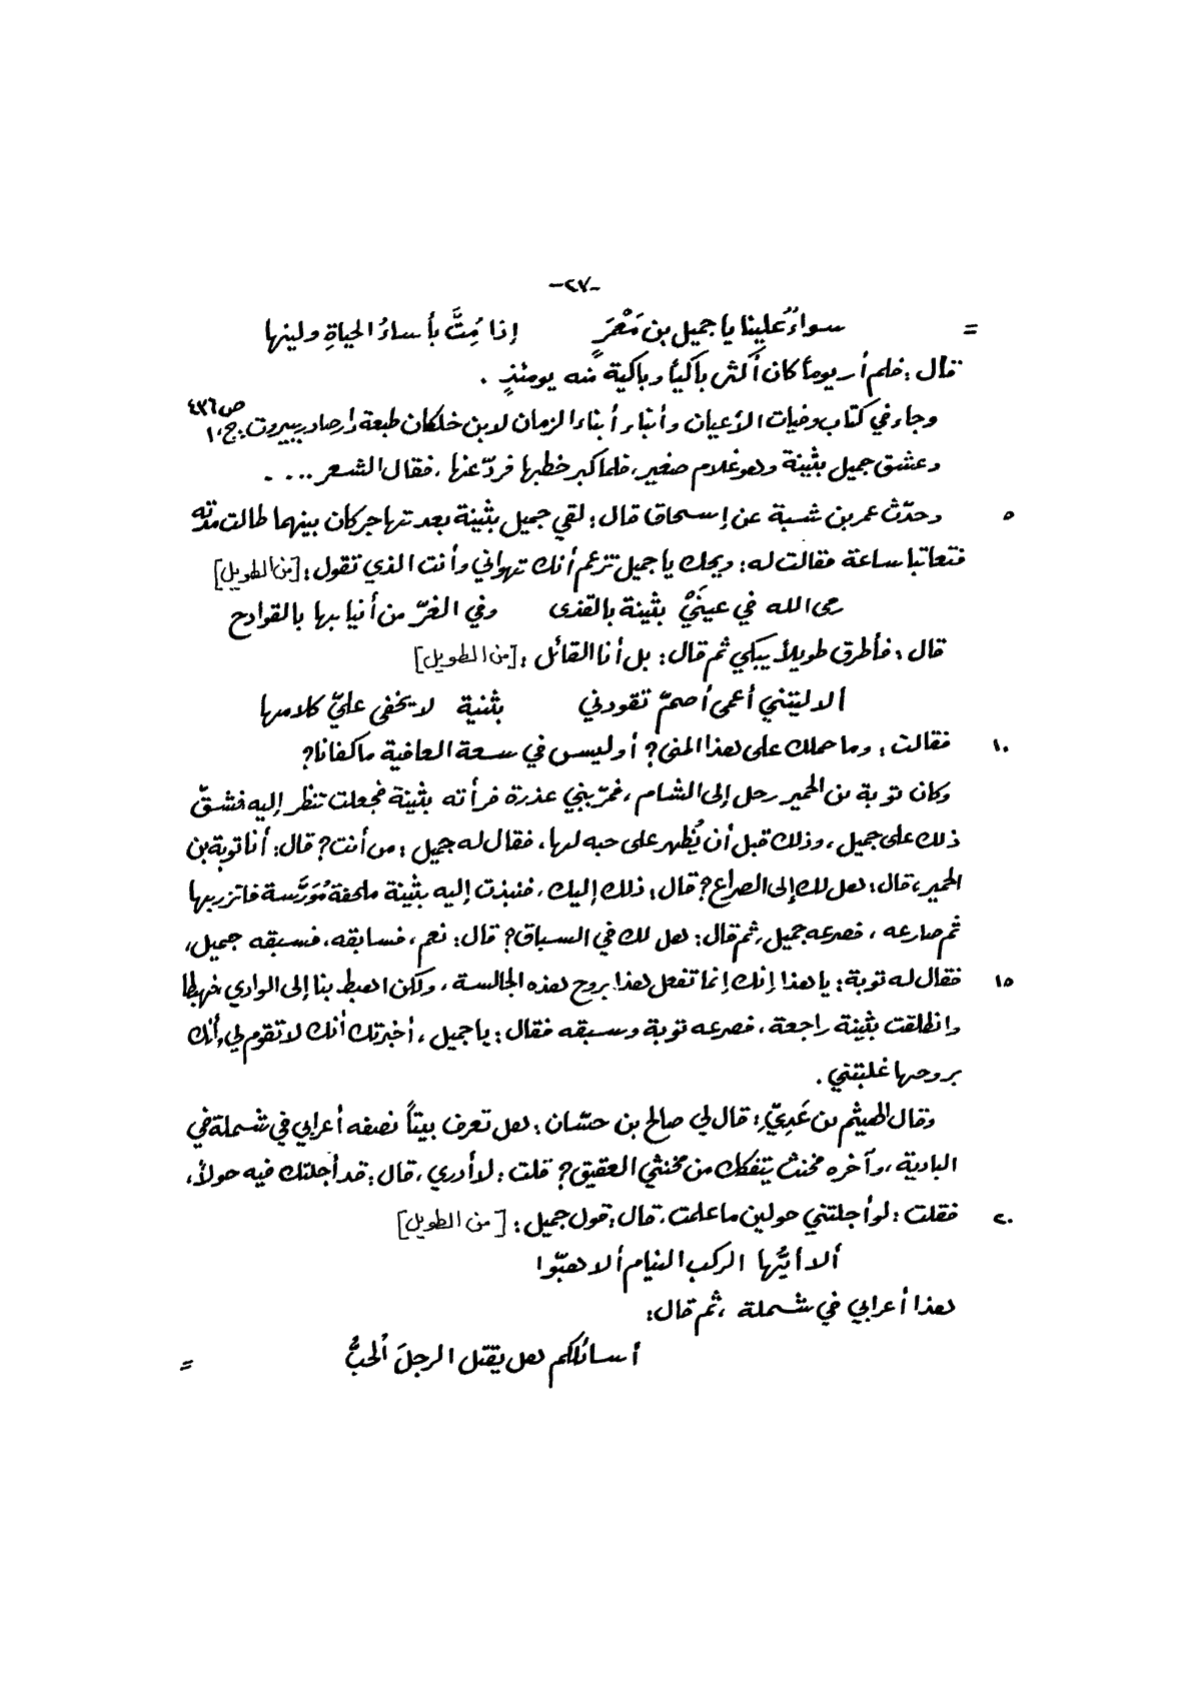 -٢٧-
= سواءٌ علينا يا جميل بن مَعْمَرٍ إذا مُِتَّ بأساءُ الحياةِ ولينها
قال : فلم أر يوماً كان أكثر باكياً وباكية منه يومئذٍ .
وجاء في كتاب وفيات الأعيان وأنباء أبناء الزمان لابن خلكان طبعة دار صادر ببيروت . ج،١ ص٤٣٦
وعشق جميل بثينة وهو غلام صغير، فلما كبر خطبها فردّ عنها ، فقال الشعر ....
٥ وحدّث عمر بن شبة عن إسحاق قال : لقي جميل بثينة بعد تهاجر كان بينهما طالت مدته
فتعاتبا ساعة فقالت له : ويحك يا جميل تزعم أنك تهواني وأنت الذي تقول : [من الطويل]
رمى الله في عينَيْ بثينة بالقذى وفي الغرّ من أنيابها بالقوادح
قال : فأطرق طويلاً يبكي ثم قال : بل أنا القائل : [من الطويل]
ألا ليتني أعمى أصمّ تقودني بثنية لا يخفى عليّ كلامها
١٠ فقالت : وما حملك على هذا المنى ؟ أوليس في سعة العافية ما كفانا ؟
وكان توبة بن الحمير رحل إلى الشام ، فمرّ ببني عذرة فرأته بثينة فجعلت تنظر إليه فشقّ
ذلك على جميل ، وذلك قبل أن يُظهر على حبه لها ، فقال له جميل : من أنت ؟ قال : أنا توبة بن
الحمير ، قال : هل لك إلى الصراع ؟ قال : ذلك إليك ، فنبذت إليه بثينة ملحفة مُوَرَّسة فاتزر بها
ثم صارعه ، فصرعه جميل ، ثم قال : هل لك في السباق ؟ قال : نعم ، فسابقه ، فسبقه جميل ،
١٥ فقال له توبة : يا هذا إنك إنما تفعل هذا بروح هذه الجالسة ، ولكن اهبط بنا إلى الوادي ، فهبطا
وانطلقت بثينة راجعة ، فصرعه توبة وسبقه فقال : يا جميل ، أخبرتك أنك لا تقوم لي وأنك
بروحها غلبتني .
وقال الهيثم بن عَدِيّ : قال لي صالح بن حسّان : هل تعرف بيتاً نصفه أعرابي في شملة في
البادية ، وآخره مخنث يتفكك من مخنثي العقيق ؟ قلت : لا أدري ، قال : قد أجلتك فيه حولاً ،
٢٠ فقلت : لو أجلتني حولين ما علمت ، قال : قول جميل : [من الطويل]
ألا أيُّها الركب النيام ألا هبّوا
هذا أعرابي في شملة ، ثم قال :
أسائلكم هل يقتل الرجلَ الحبُّ =